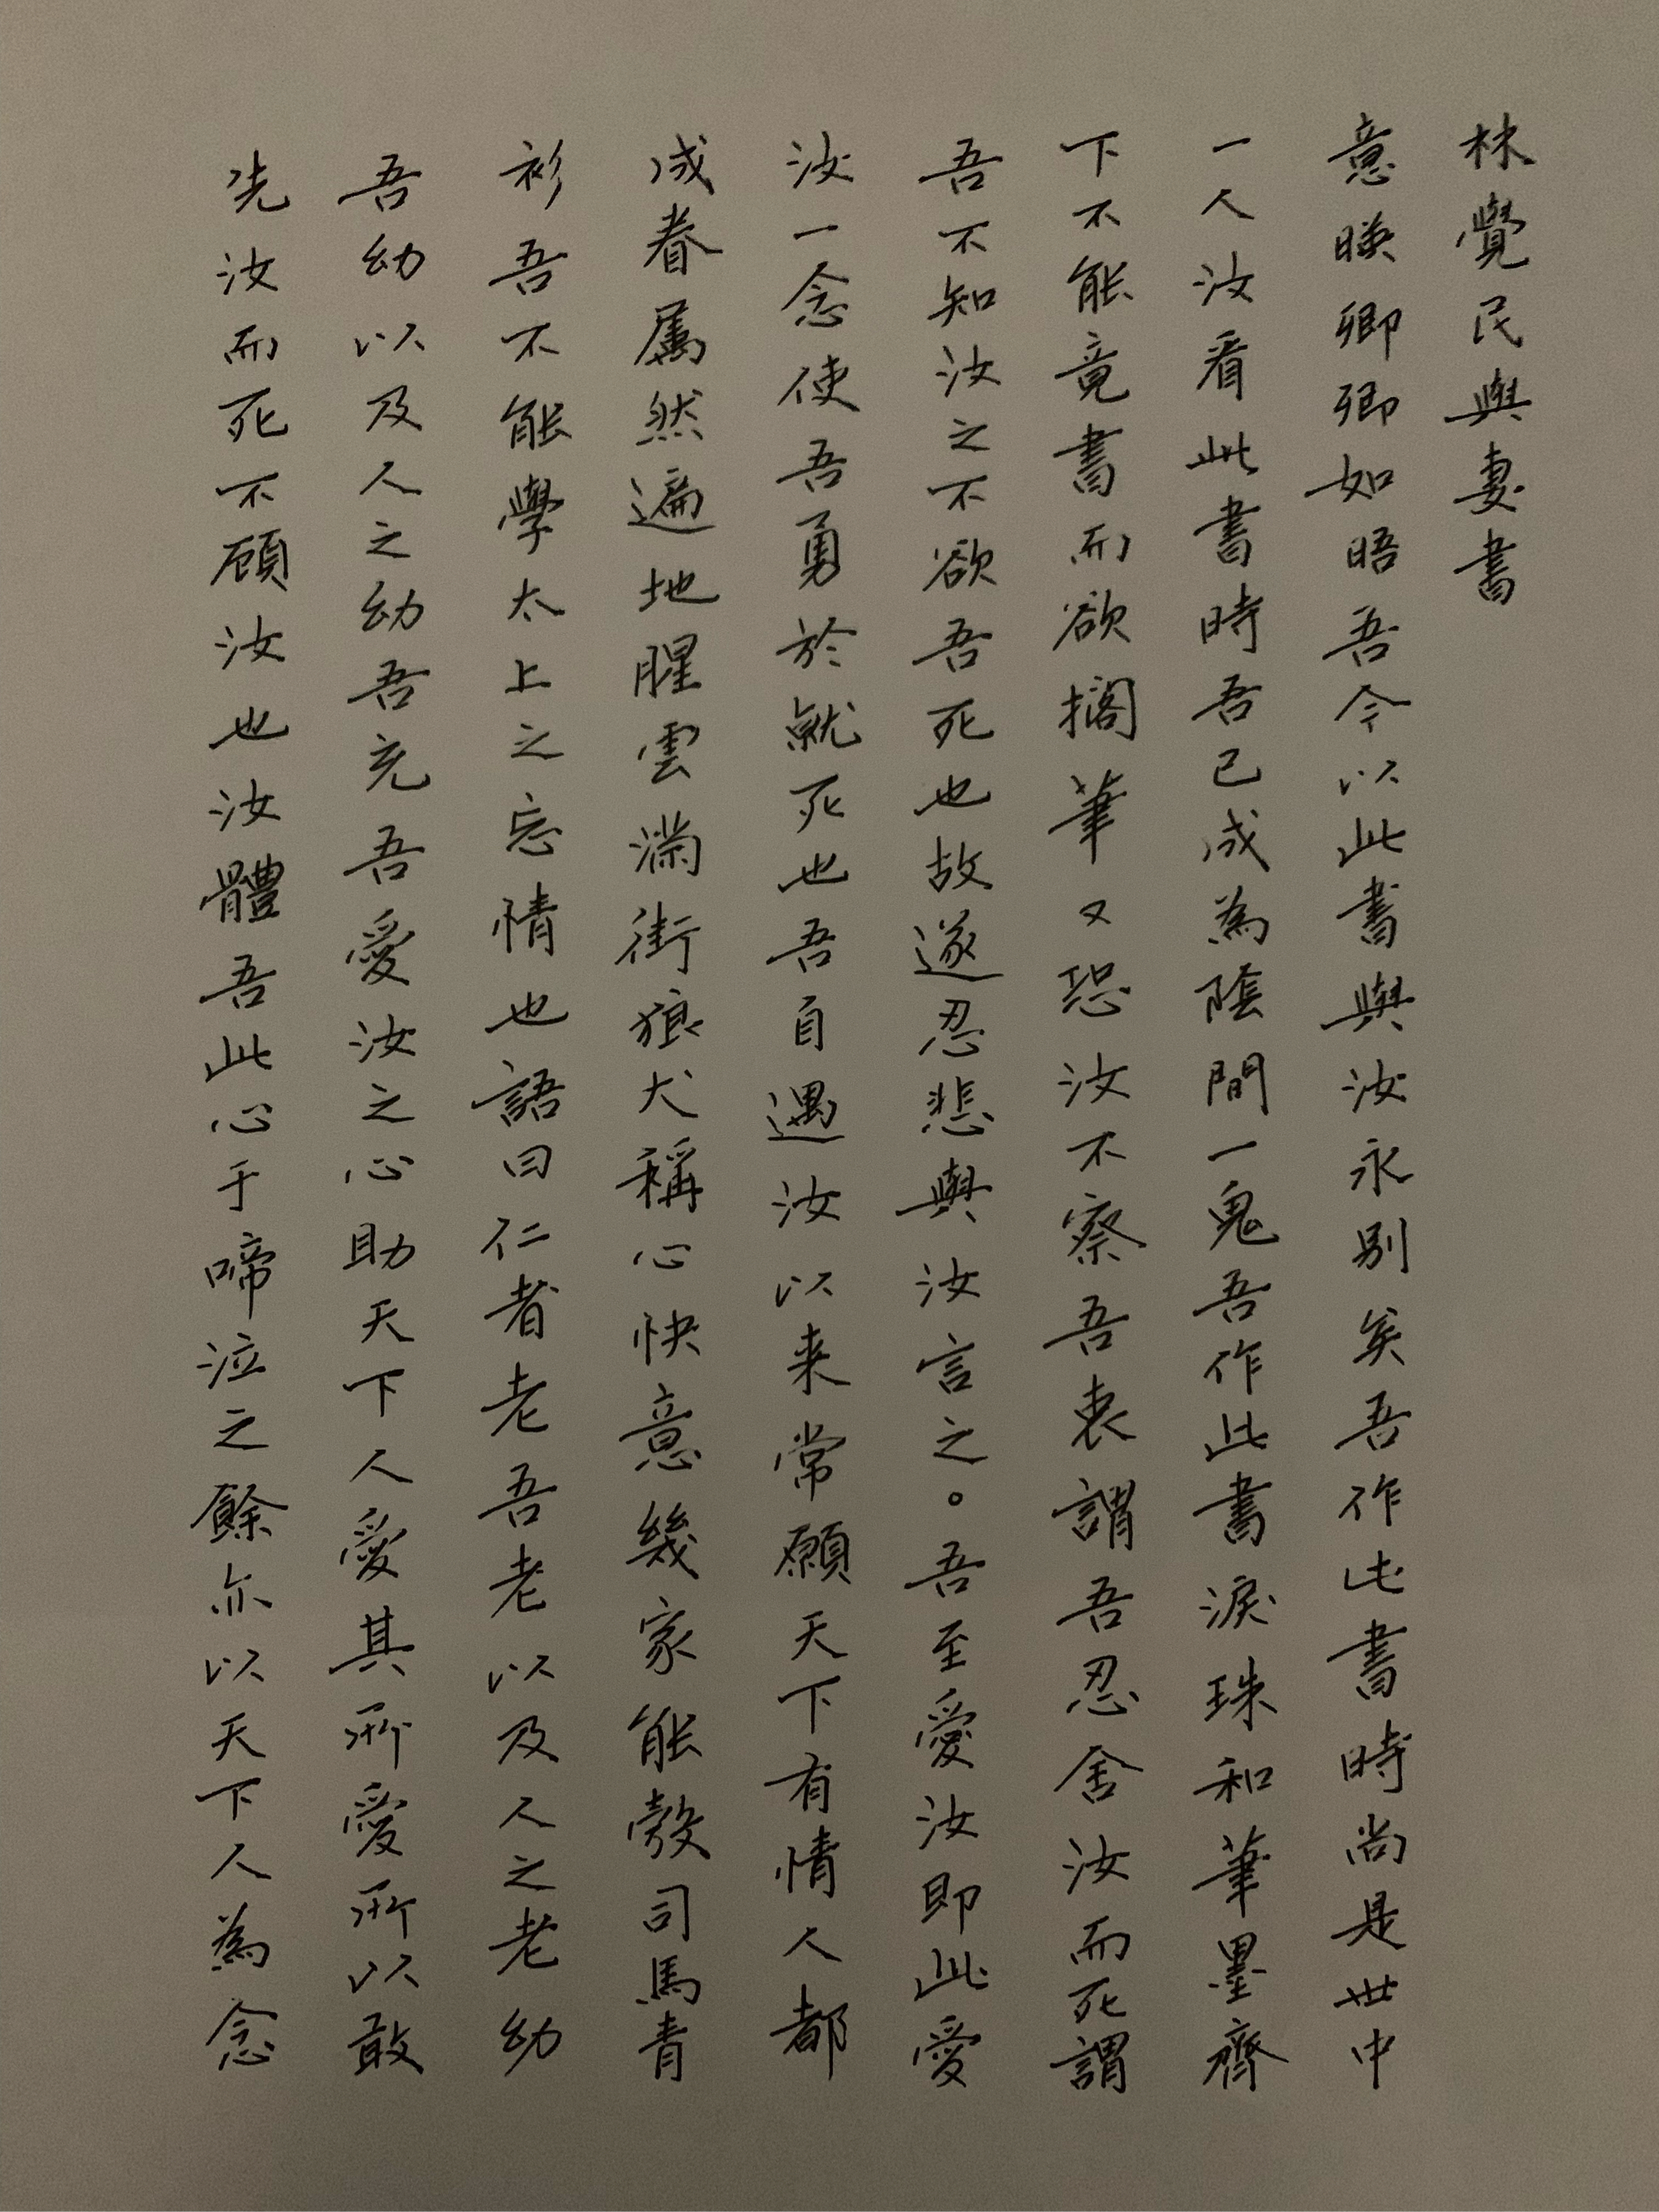 林覺民與妻書
意暎卿卿如晤吾今以此書與汝永別矣吾作此書時尚是世中
一人汝看此書時吾已成為陰間一鬼吾作此書淚珠和筆墨齊
下不能竟書而欲擱筆又恐汝不察吾衷謂吾忍舍汝而死謂
吾不知汝之不欲吾死也故遂忍悲與汝言之。吾至愛汝即此愛
汝一念使吾勇於就死也吾自遇汝以来常願天下有情人都
成眷屬然遍地腥雲滿街狼犬稱心快意幾家能彀司馬青
衫吾不能學太上之忘情也語曰仁者老吾老以及人之老幼
吾幼以及人之幼吾充吾愛汝之心助天下人愛其所愛所以敢
先汝而死不顧汝也汝體吾此心于啼泣之餘亦以天下人為念